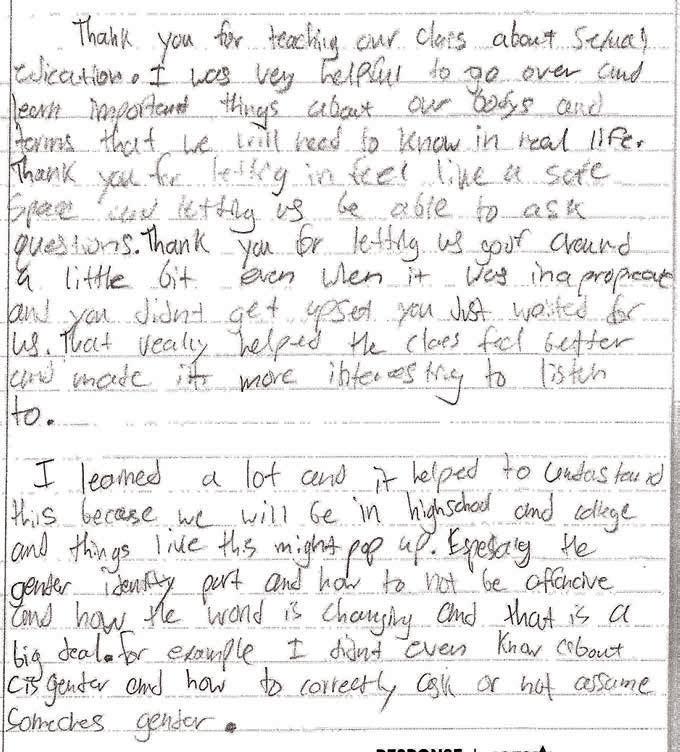 Thank you for teaching our class about Sexual
edication. I was very helpful to go over and
learn important things about our bodys and
terms that we will need to know in real life.
Thank you for letting in feel like a safe
Space and letting us be able to ask
questions. Thank you for letting us goof around
a little bit even when it was inapropreate
and you didnt get upset you Just waited for
us. That really helped the class feel better
and made it more interesting to listen
to.
I learned a lot and it helped to undastand
this because we will be in highschool and college
and things like this might pop up. Especialy the
gender identity part and how to not be offencive
and how the world is changing and that is a
big deal. for example I didnt even know about
cisgender and how to correctly ask or not assume
Someones gender.